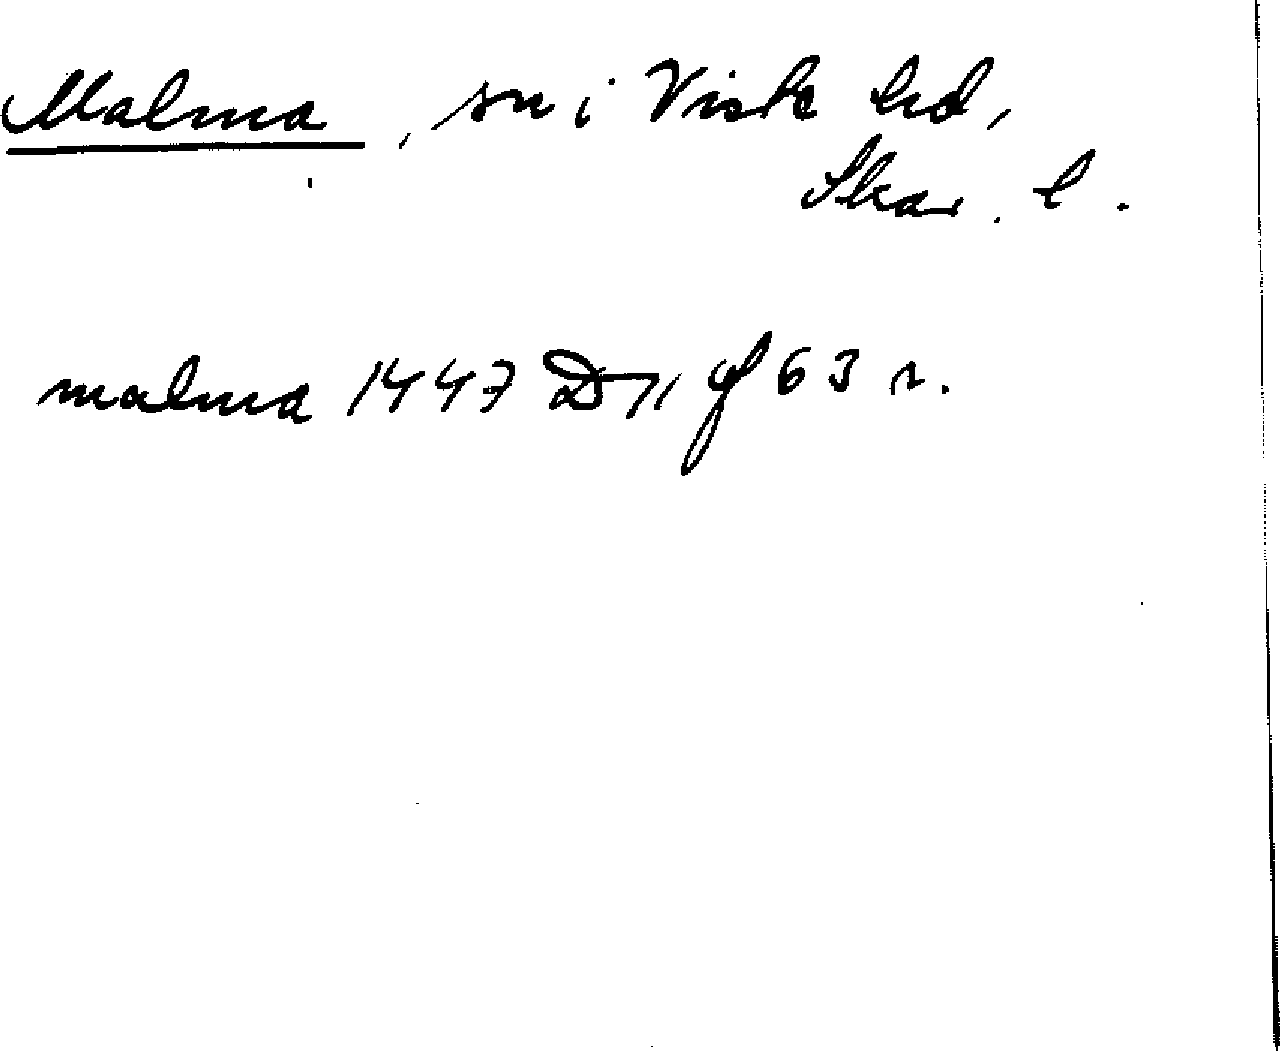 Malma, sn i Viste hd,
Skar. l.
malma 1447 D 11 f 63 r.